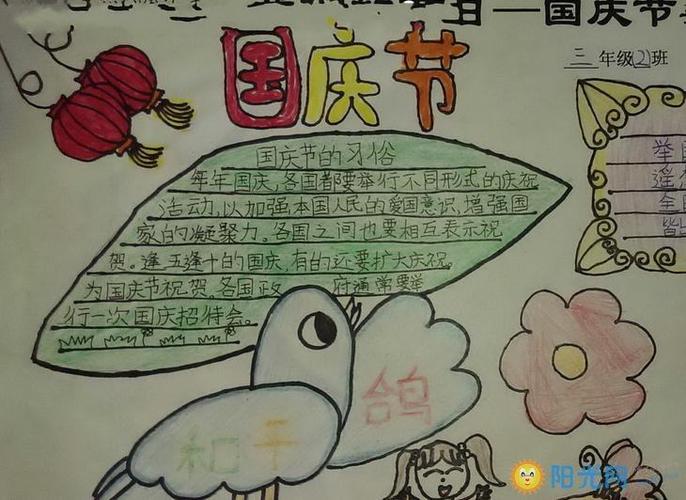 日—国庆节
三年级(2)班
国庆节
国庆节的习俗
每年国庆,各国都要举行不同形式的庆祝
活动,以加强本国人民的爱国意识,增强国
家的凝聚力。各国之间也要相互表示祝
贺。逢五逢十的国庆,有的还要扩大庆祝。
为国庆节祝贺。各国政府通常要举
行一次国庆招待会。
举国
遥
全国
皆
和平鸽
阳光网